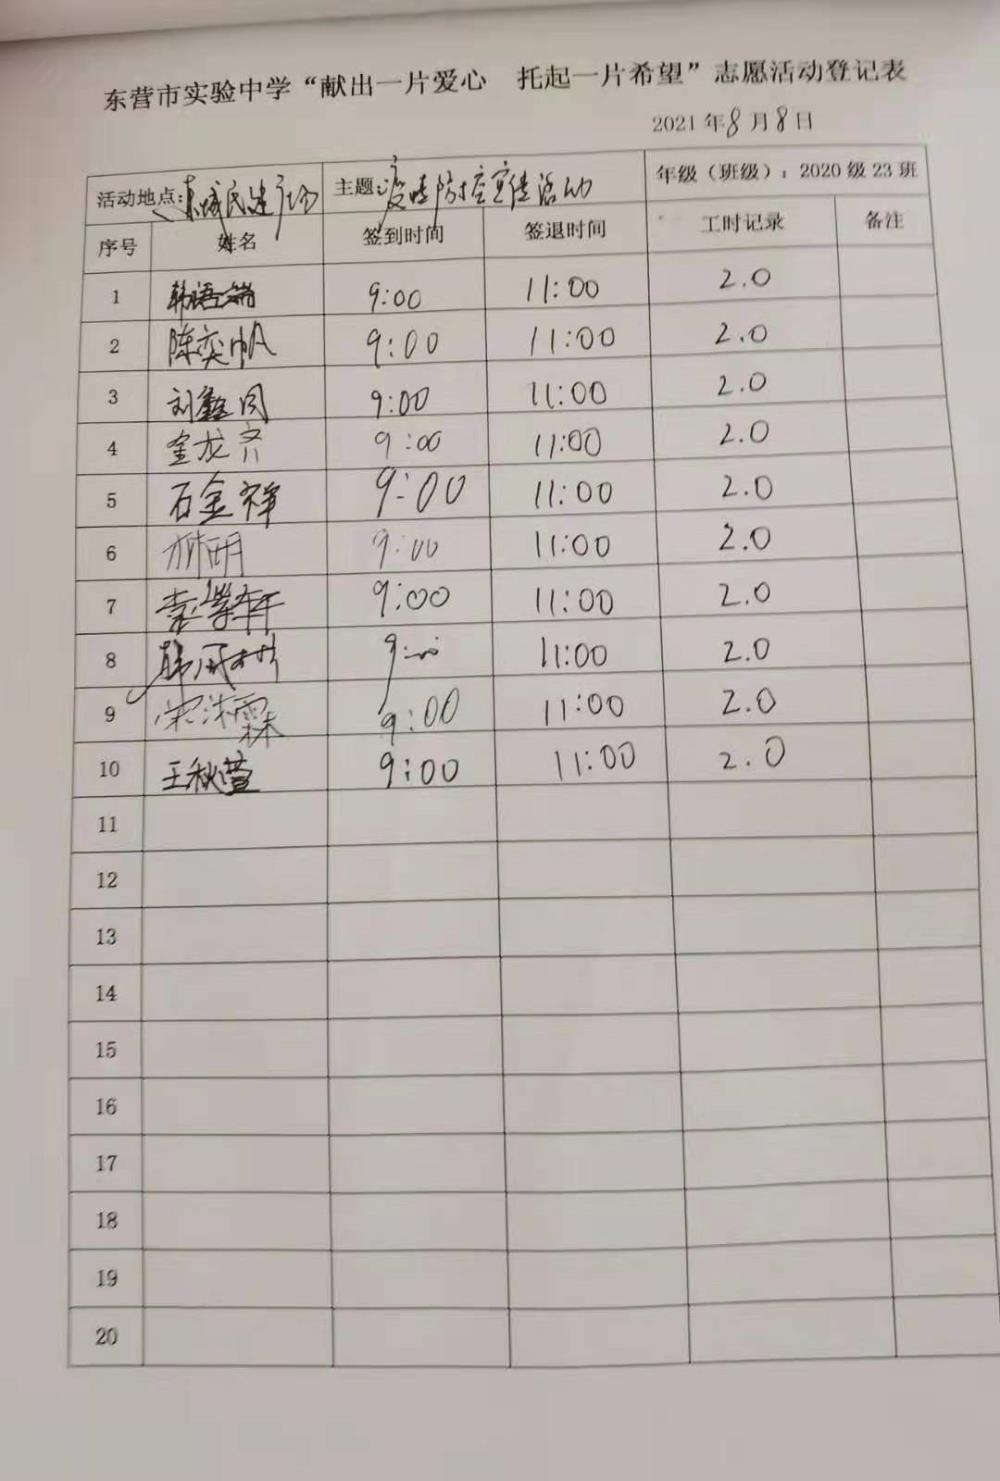 东营市实验中学“献出一片爱心 托起一片希望”志愿活动登记表
2021年8月8日
活动地点：东城民建广场 主题：疫情防控宣传活动 年级（班级）：2020级23班
序号 姓名 签到时间 签退时间 工时记录 备注
1 韩语端 9:00 11:00 2.0
2 陈奕帆 9:00 11:00 2.0
3 刘鑫同 9:00 11:00 2.0
4 金龙齐 9:00 11:00 2.0
5 石金祥 9:00 11:00 2.0
6 9:00 11:00 2.0
7 9:00 11:00 2.0
8 9:00 11:00 2.0
9 宋沐霖 9:00 11:00 2.0
10 王秋萱 9:00 11:00 2.0
11
12
13
14
15
16
17
18
19
20